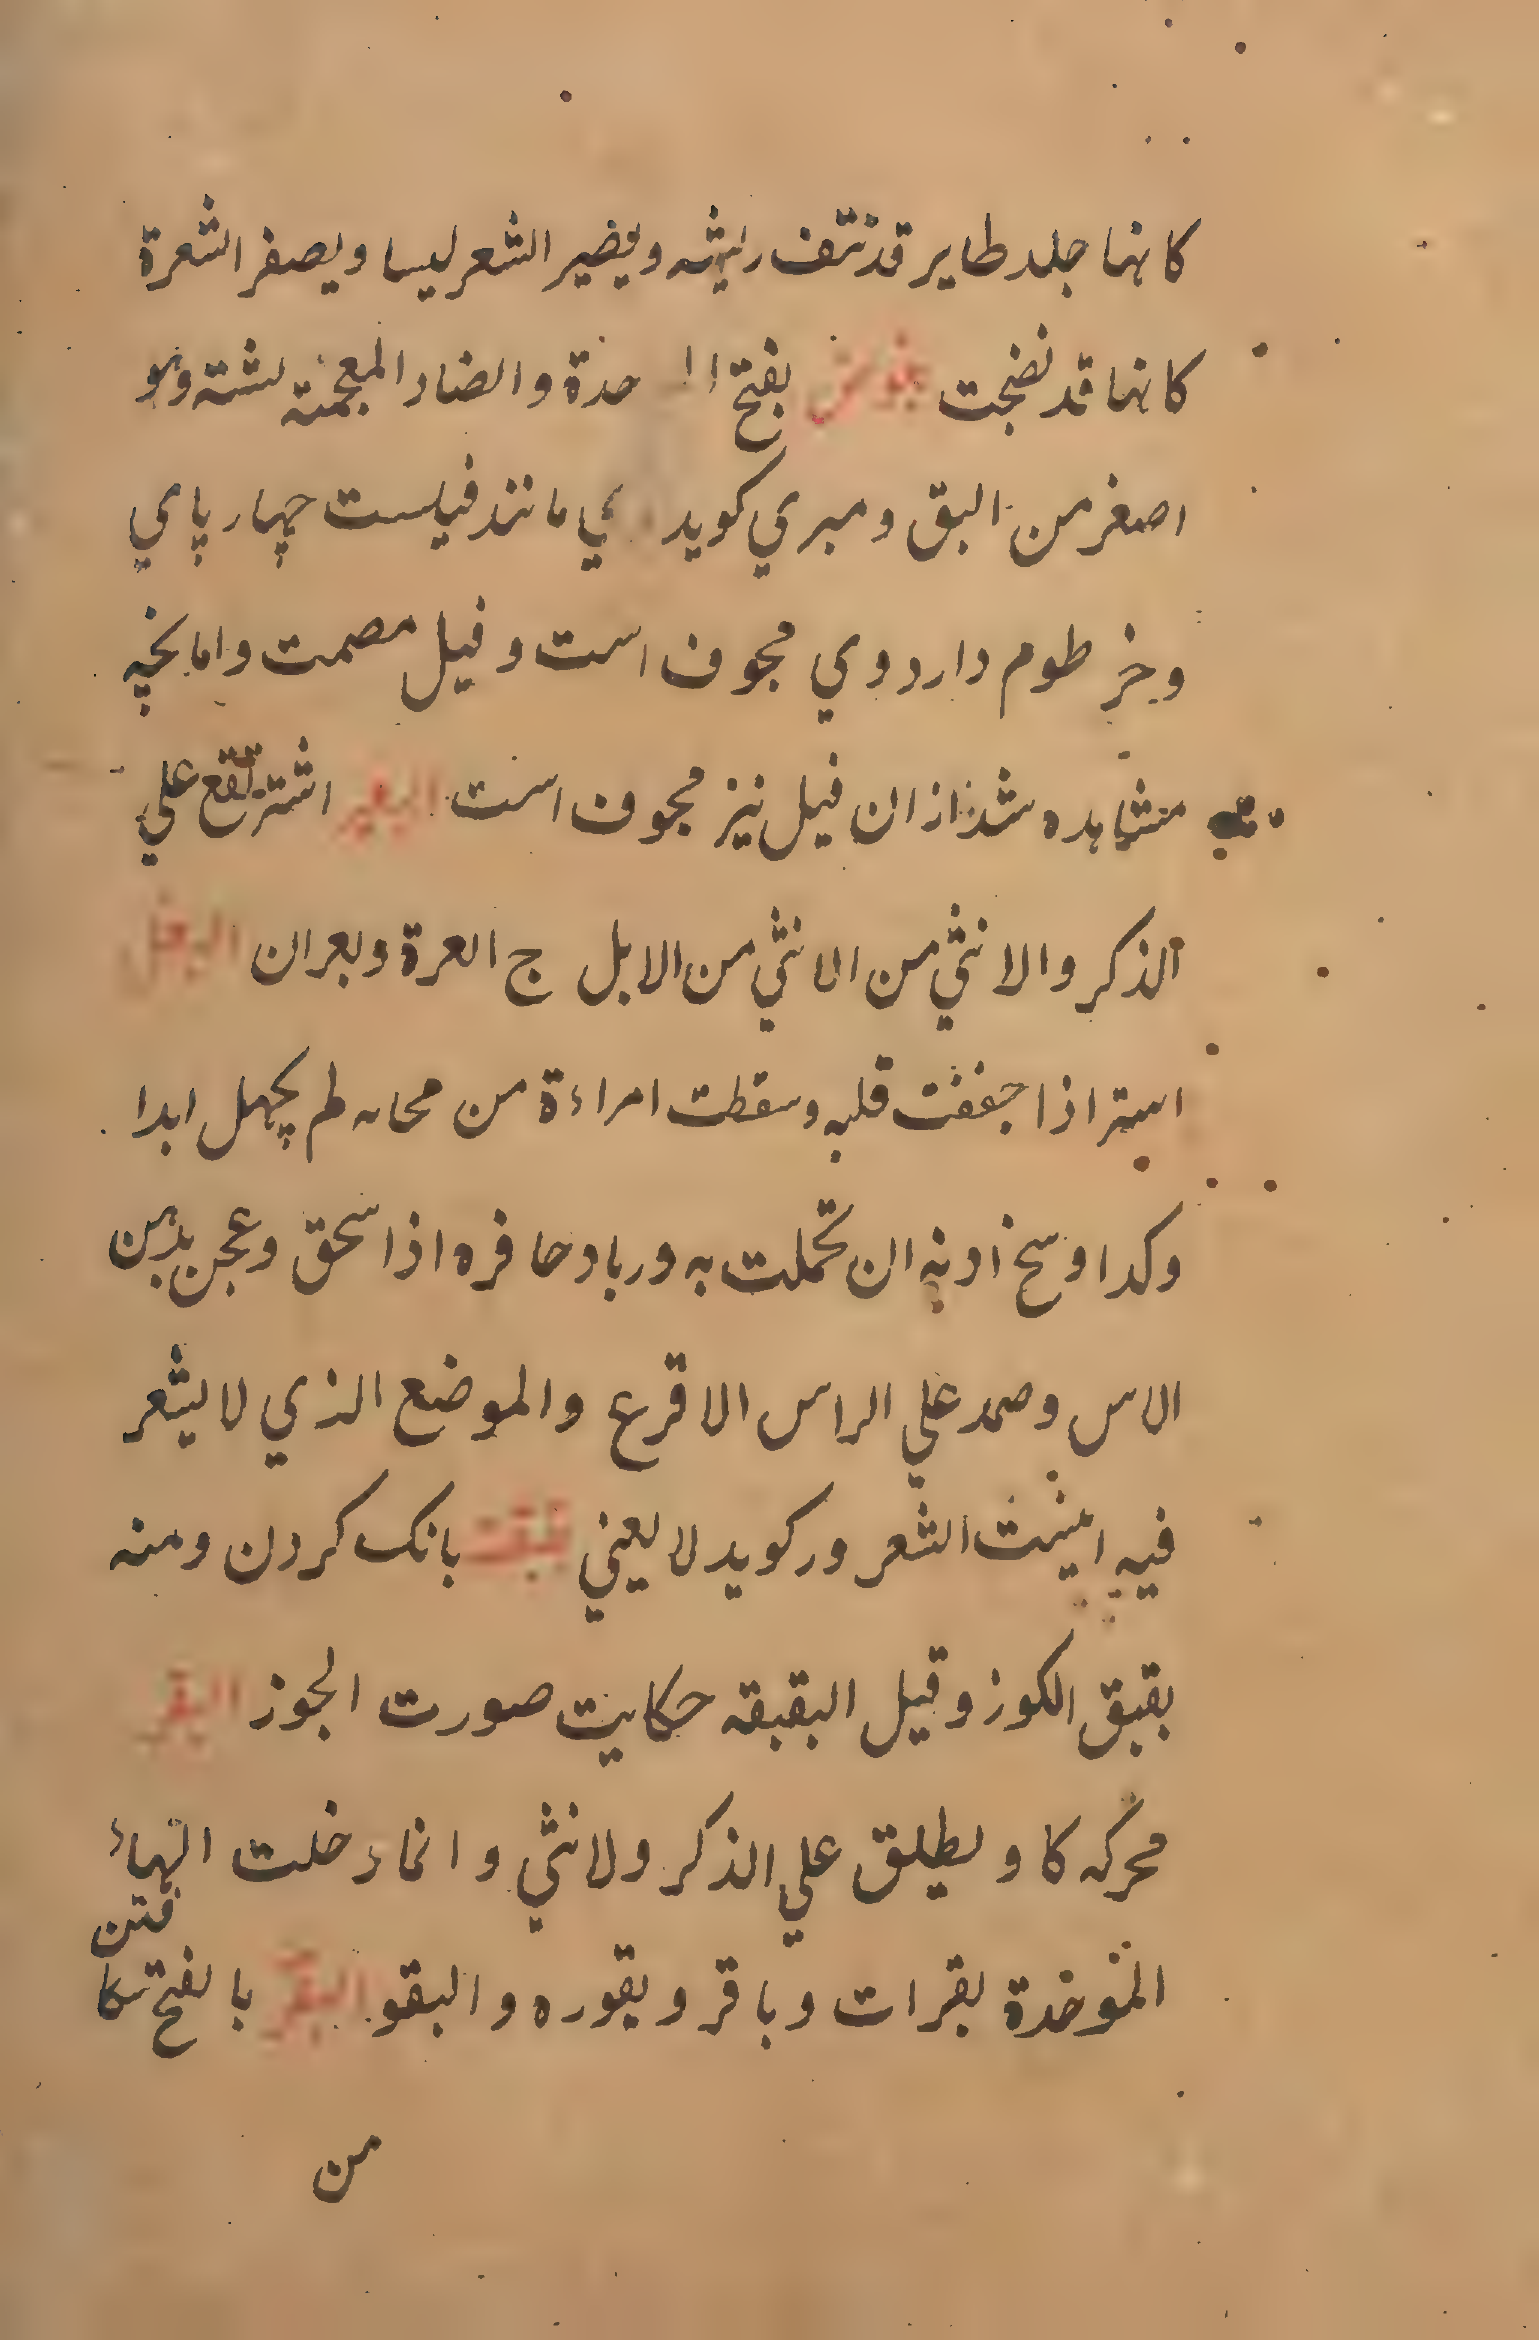 كانها جلد طاير قد نتف ريشه ويضير الشعر ليسا ويصفر الشعرة
كانها قد نضجت بعوض بفتح حدة والضاد المعجمة لشته وهو
اصغر من البق ومبري كويد ي مانند فيلست چهار پاي
وخرطوم دارد وي مجوف است وفيل مصمت واما نچه
مشاهده شد ازان فيل نيز مجوف است البعير اشتر تقع علي
الذكر والانثي من الانثي من الابل ج ابعرة وبعران البغل
استر اذا جففت قلبه وسقطت امراءة من محانه لم يحهل ابدا
وكدا وسخ اونه ان تحملت به ورباد حافره اذا سحق وعجن بدهن
الاس وصمد علي الراس الاقرع والموضع الذي لا يشعر
فيه انبتت الشعر ور كويد لا يعني بقبقة بانك كردن ومنه
بقبق الكوز وقيل البقبقه حكايت صورت الجوز البقر
محركه كاو يطلق علي الذكر ولانثي وانما دخلت الهاء
بقرات وباقر وبقوره والبقو البقر بالفتح شكافتن
من